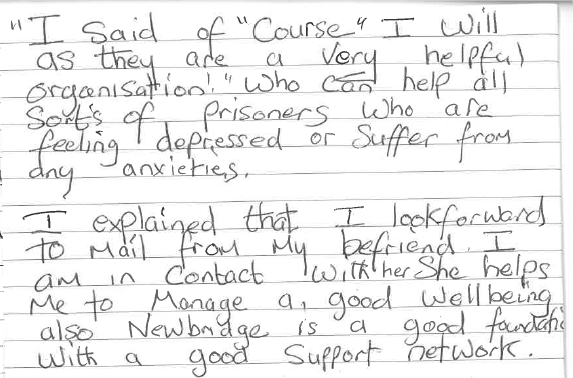 "I Said of "Course" I will
as they are a very helpful
organisation!" Who can help all
Sort's of prisoners who are
feeling depressed or Suffer from
any anxieties.
I explained that I lookforward
to Mail from My befriend. I
am in Contact with her She helps
Me to Manage a, good Wellbeing
also Newbridge is a good foundatio
With a good Support network.